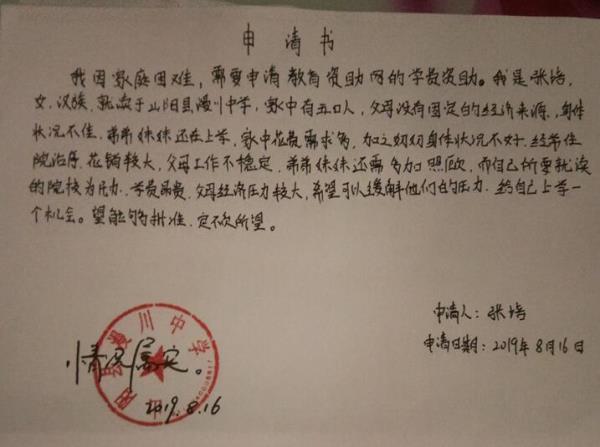 申请书
我因家庭困难，需要申请教育资助网的学费资助。我是张培，
女，汉族，就读于山阳县漫川中学，家中有五口人，父母没有固定的经济来源，身体
状况不佳，弟弟妹妹还在上学，家中花费需求多，加之奶奶身体状况不好，经常住
院治疗，花销较大，父母工作不稳定，弟弟妹妹还需多加照顾，而自己所要就读
的院校为民办，学费昂贵，父母经济压力较大，希望可以缓解他们的压力，给自己上学一
个机会。望能够批准，定不负所望。
申请人：张培
申请日期：2019年8月16日
山阳县漫川中学
情况属实。
2019.8.16